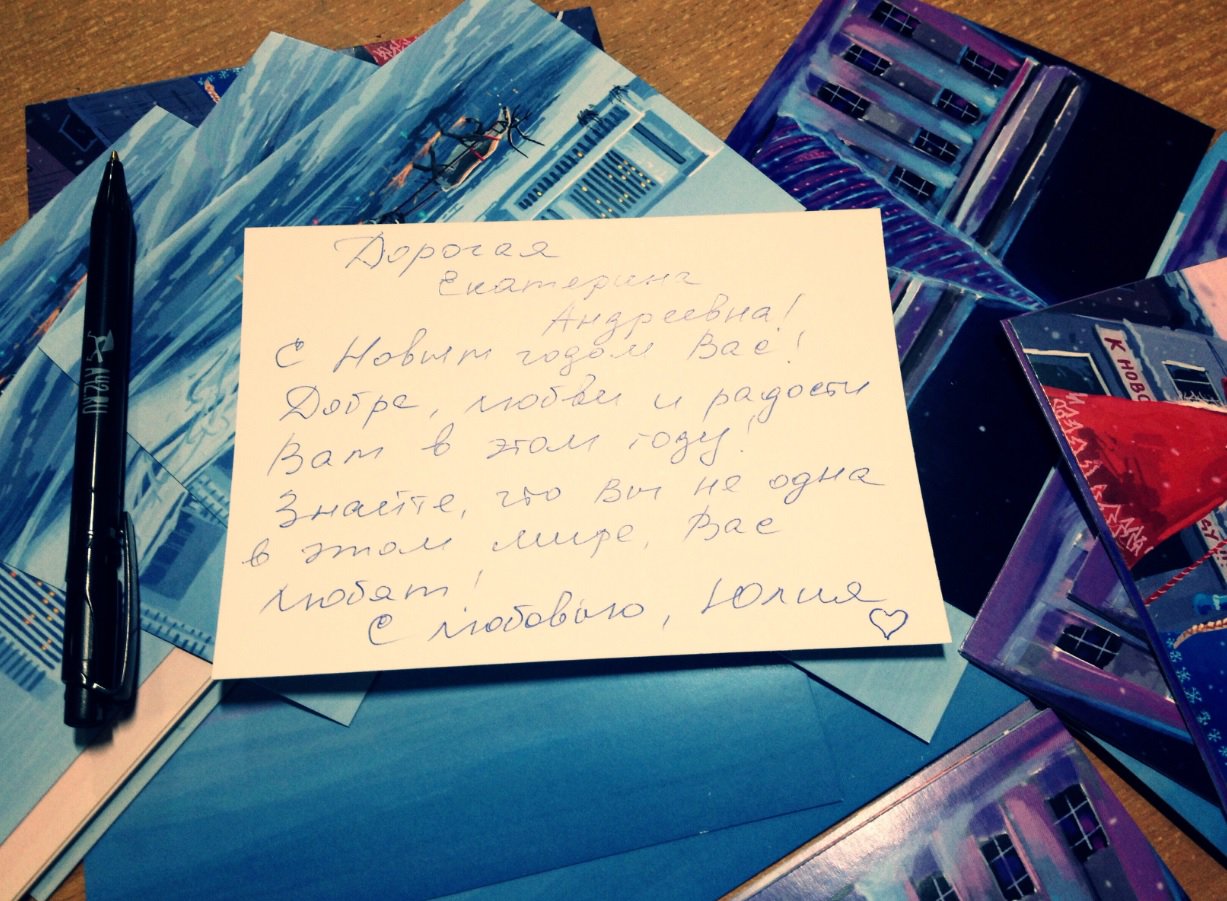 Дорогая
Екатерина
Андреевна!
С Новым годом Вас!
Добра, любви и радости
Вам в этом году!
Знайте, что Вы не одна
в этом мире, Вас
любят!
С любовью, Юлия
A42.RU
К НОВО